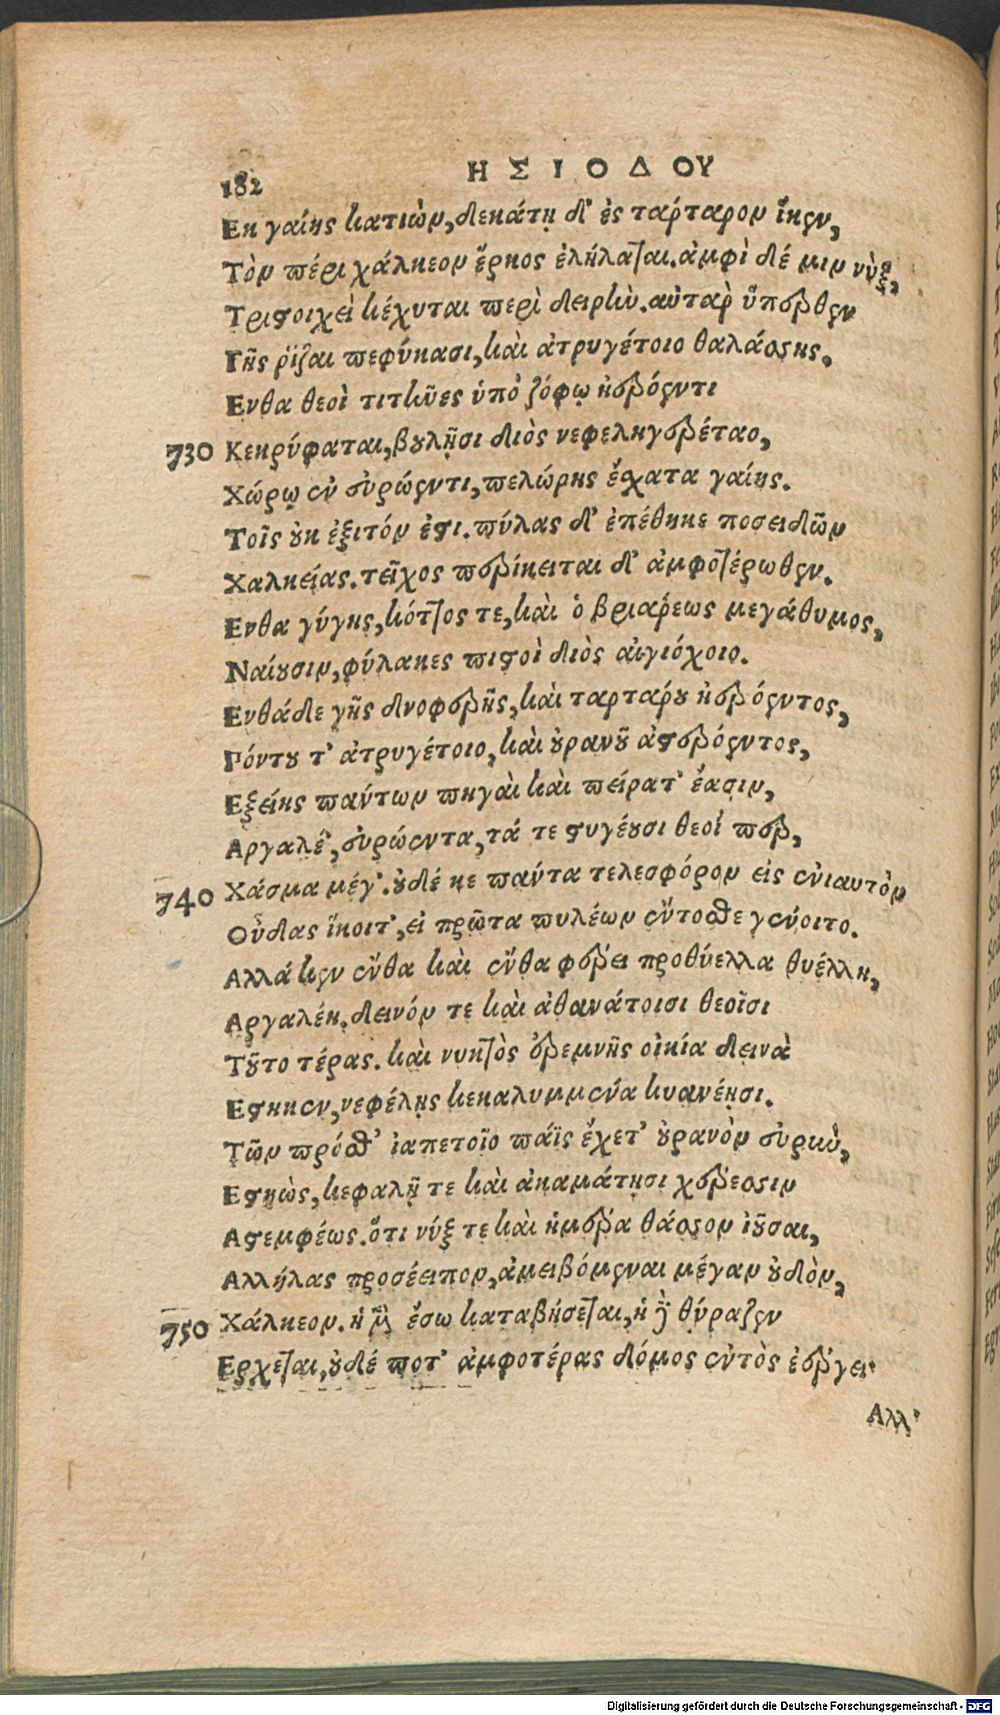 182 ΗΣΙΟΔΟΥ
Εκ γαίης κατιὼν, δεκάτῃ δ' ἐς τάρταρον ἵκεν,
Τὸν πέρι χάλκεον ἕρκος ἐλήλαται. ἀμφὶ δέ μιν νὺξ,
Τριστοιχεὶ κέχυται περὶ δειρὴν. αὐτὰρ ὕπερθεν
Γῆς ῥίζαι πεφύκασι, καὶ ἀτρυγέτοιο θαλάσσης.
Ενθα θεοὶ τιτῆνες ὑπὸ ζόφῳ ἠερόεντι
730 Κεκρύφαται, βουλῇσι διὸς νεφεληγερέταο,
Χώρῳ ἐν εὐρώεντι, πελώρης ἔσχατα γαίης.
Τοῖς οὐκ ἐξιτόν ἐστι. πύλας δ' ἐπέθηκε ποσειδῶν
Χαλκείας. τεῖχος περίκειται δ' ἀμφοτέρωθεν.
Ενθα γύγης, κόττος τε, καὶ ὁ βριαρέως μεγάθυμος,
Ναίουσιν, φύλακες πιστοὶ διὸς αἰγιόχοιο.
Ενθάδε γῆς δνοφερῆς, καὶ ταρτάρου ἠερόεντος,
Πόντου τ' ἀτρυγέτοιο, καὶ οὐρανοῦ ἀστερόεντος,
Εξείης πάντων πηγαὶ καὶ πείρατ' ἔασιν,
Αργαλέ', εὐρώεντα, τά τε στυγέουσι θεοί περ,
740 Χάσμα μέγ'. οὐδέ κε πάντα τελεσφόρον εἰς ἐνιαυτὸν
Οὖδας ἵκοιτ', εἰ πρῶτα πυλέων ἔντοσθε γένοιτο.
Αλλά κεν ἔνθα καὶ ἔνθα φέρει προθύελλα θυέλλη,
Αργαλέη. δεινόν τε καὶ ἀθανάτοισι θεοῖσι
Τοῦτο τέρας. καὶ νυκτὸς ἐρεμνῆς οἰκία δεινὰ
Εστηκεν, νεφέλης κεκαλυμμένα κυανέησι.
Τῶν πρόσθ' ἰαπετοῖο πάϊς ἔχετ' οὐρανὸν εὐρὺν,
Εστηὼς, κεφαλῇ τε καὶ ἀκαμάτῃσι χέρεσσιν
Αστεμφέως. ὅτι νύξ τε καὶ ἡμέρα θάσσον ἰοῦσαι,
Αλλήλας προσέειπον, ἀμειβόμεναι μέγαν οὐδὸν,
750 Χάλκεον. ἡ μὲν ἔσω καταβήσεται, ἡ δὲ θύραζεν
Ερχεται, οὐδέ ποτ' ἀμφοτέρας δόμος ἐντὸς ἐέργει·
Αλλ'
Digitalisierung gefördert durch die Deutsche Forschungsgemeinschaft - DFG